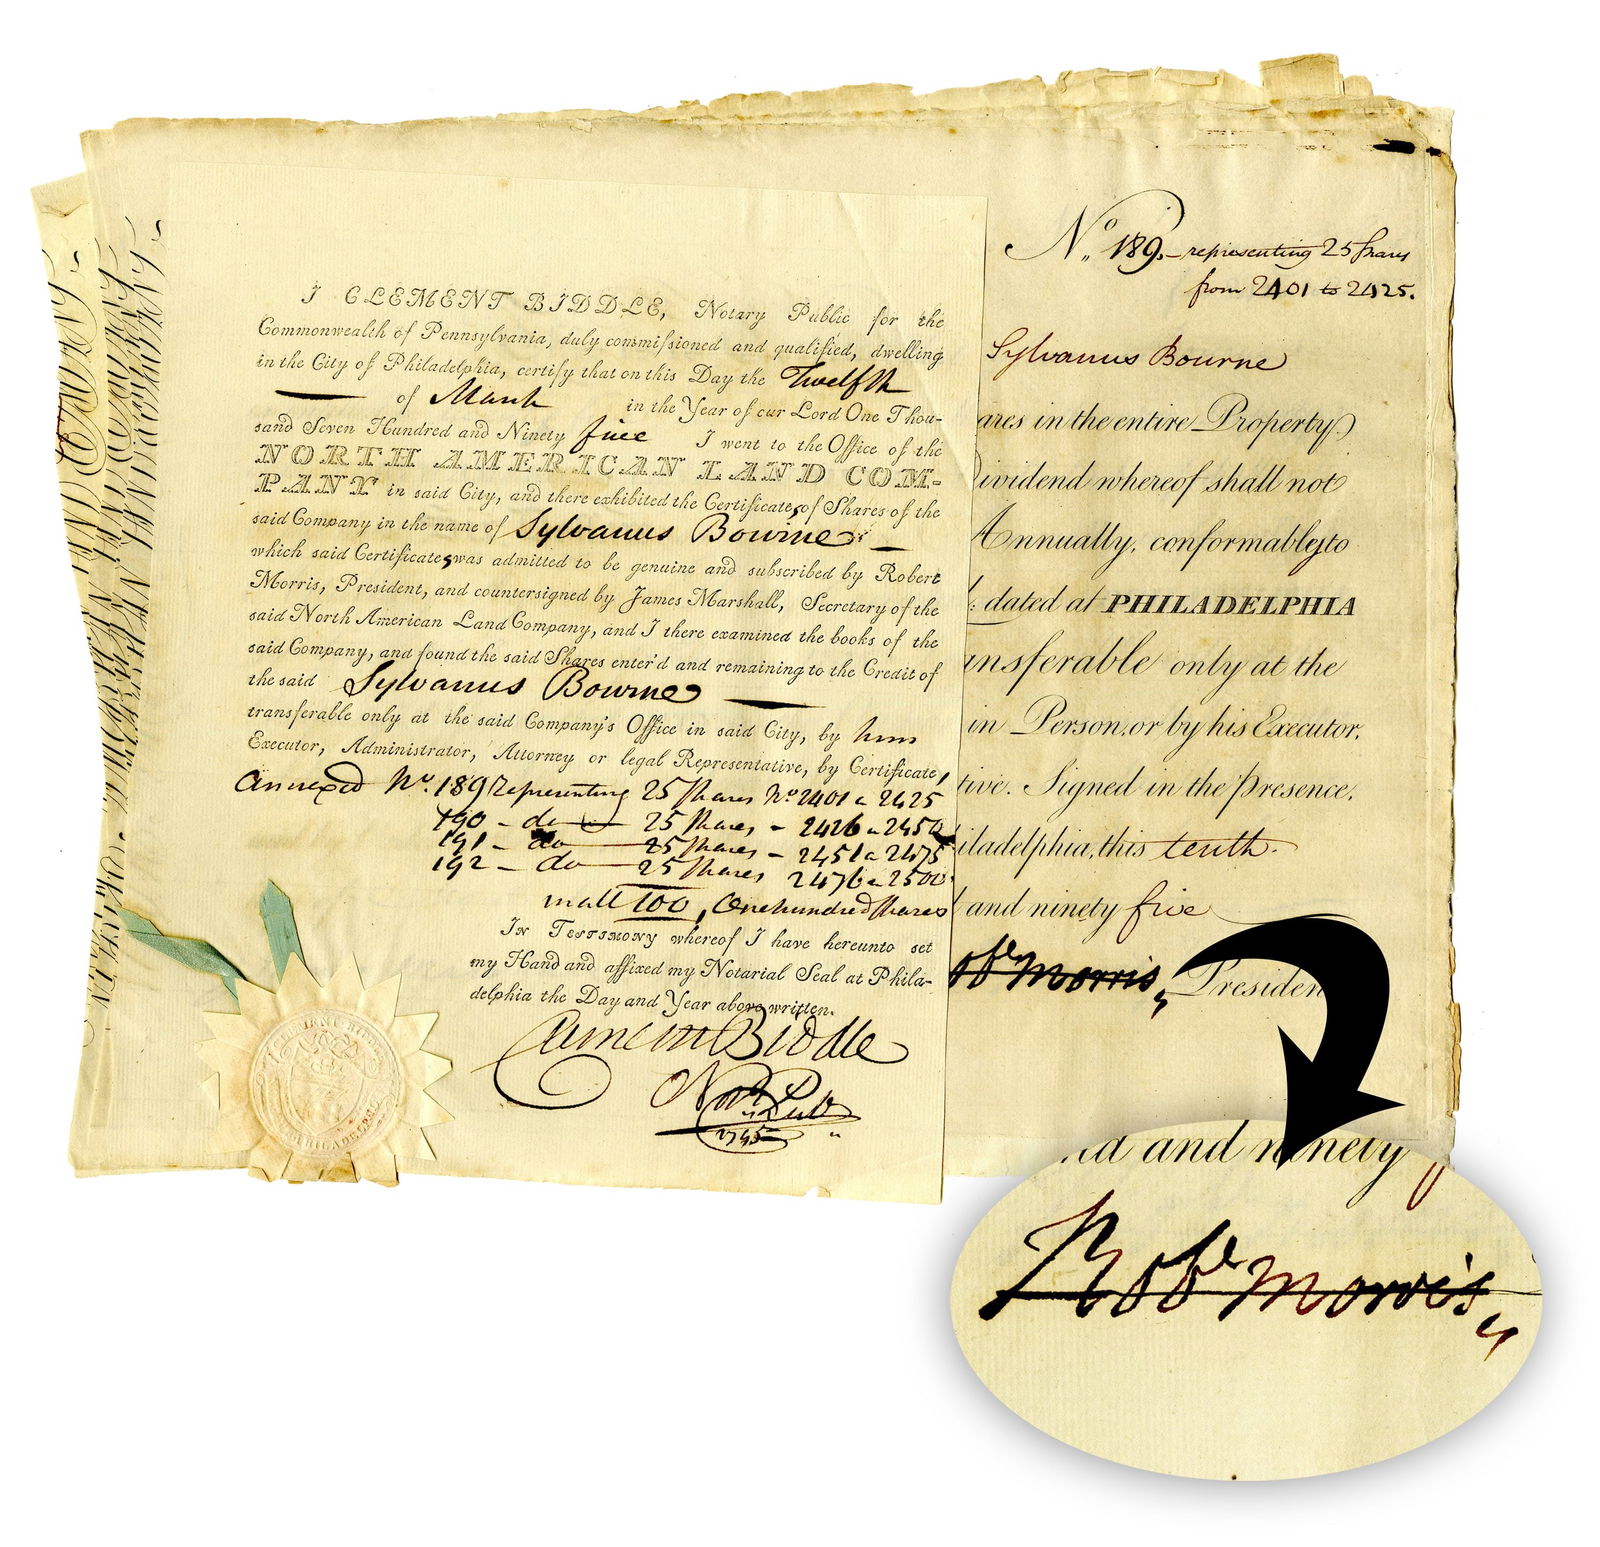 I CLEMENT BIDDLE, Notary Public for the
Commonwealth of Pennsylvania, duly commissioned and qualified, dwelling
in the City of Philadelphia, certify that on this Day the Twelfth
of March in the Year of our Lord One Thou-
sand Seven Hundred and Ninety five I went to the Office of the
NORTH AMERICAN LAND COM-
PANY in said City, and there exhibited the Certificates of Shares of the
said Company in the name of Sylvanus Bourne
which said Certificates was admitted to be genuine and subscribed by Robert
Morris, President, and countersigned by James Marshall, Secretary of the
said North American Land Company, and I there examined the books of the
said Company, and found the said Shares enter'd and remaining to the Credit of
the said Sylvanus Bourne
transferable only at the said Company's Office in said City, by him
Executor, Administrator, Attorney or legal Representative, by Certificate,
annexed No. 189 representing 25 Shares No. 2401 a 2425
190 - do - 25 Shares - 2426 a 2450
191 - do - 25 Shares - 2451 a 2475
192 - do - 25 Shares 2476 a 2500
in all 100, One hundred Shares
IN TESTIMONY whereof I have hereunto set
my Hand and affixed my Notarial Seal at Phila-
delphia the Day and Year above written.
Clement Biddle
Not Pub
1795
No. 189. representing 25 Shares
from 2401 to 2425.
Sylvanus Bourne
ares in the entire Property
Dividend whereof shall not
Annually, conformably to
dated at PHILADELPHIA
ansferable only at the
in Person, or by his Executor,
tive. Signed in the presence,
iladelphia, this tenth.
and ninety five
obt Morris, Presiden
and ninety
Robt Morris,